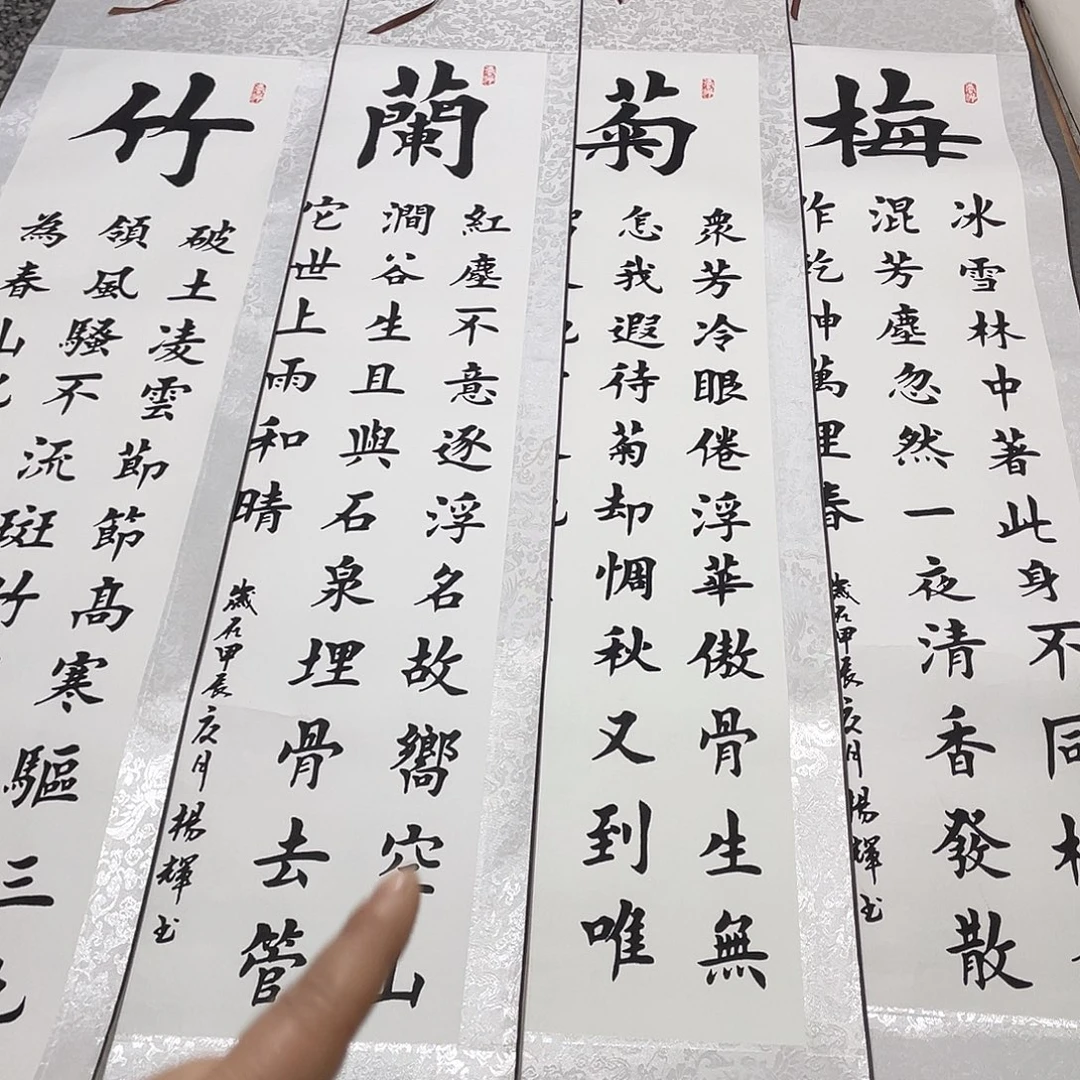 梅
冰雪林中著此身不同
混芳塵忽然一夜清香發散
作乾坤萬里春
歲在甲辰亥月楊輝书
菊
衆芳冷眼倦浮華傲骨生無
怎我遐待菊却惆秋又到唯
蘭
紅塵不意逐浮名故嚮空山
澗谷生且與石泉埋骨去管
它世上雨和晴
歲在甲辰亥月楊輝书
竹
破土凌雲節節高寒驅三
領風騷不流斑竹
為春山